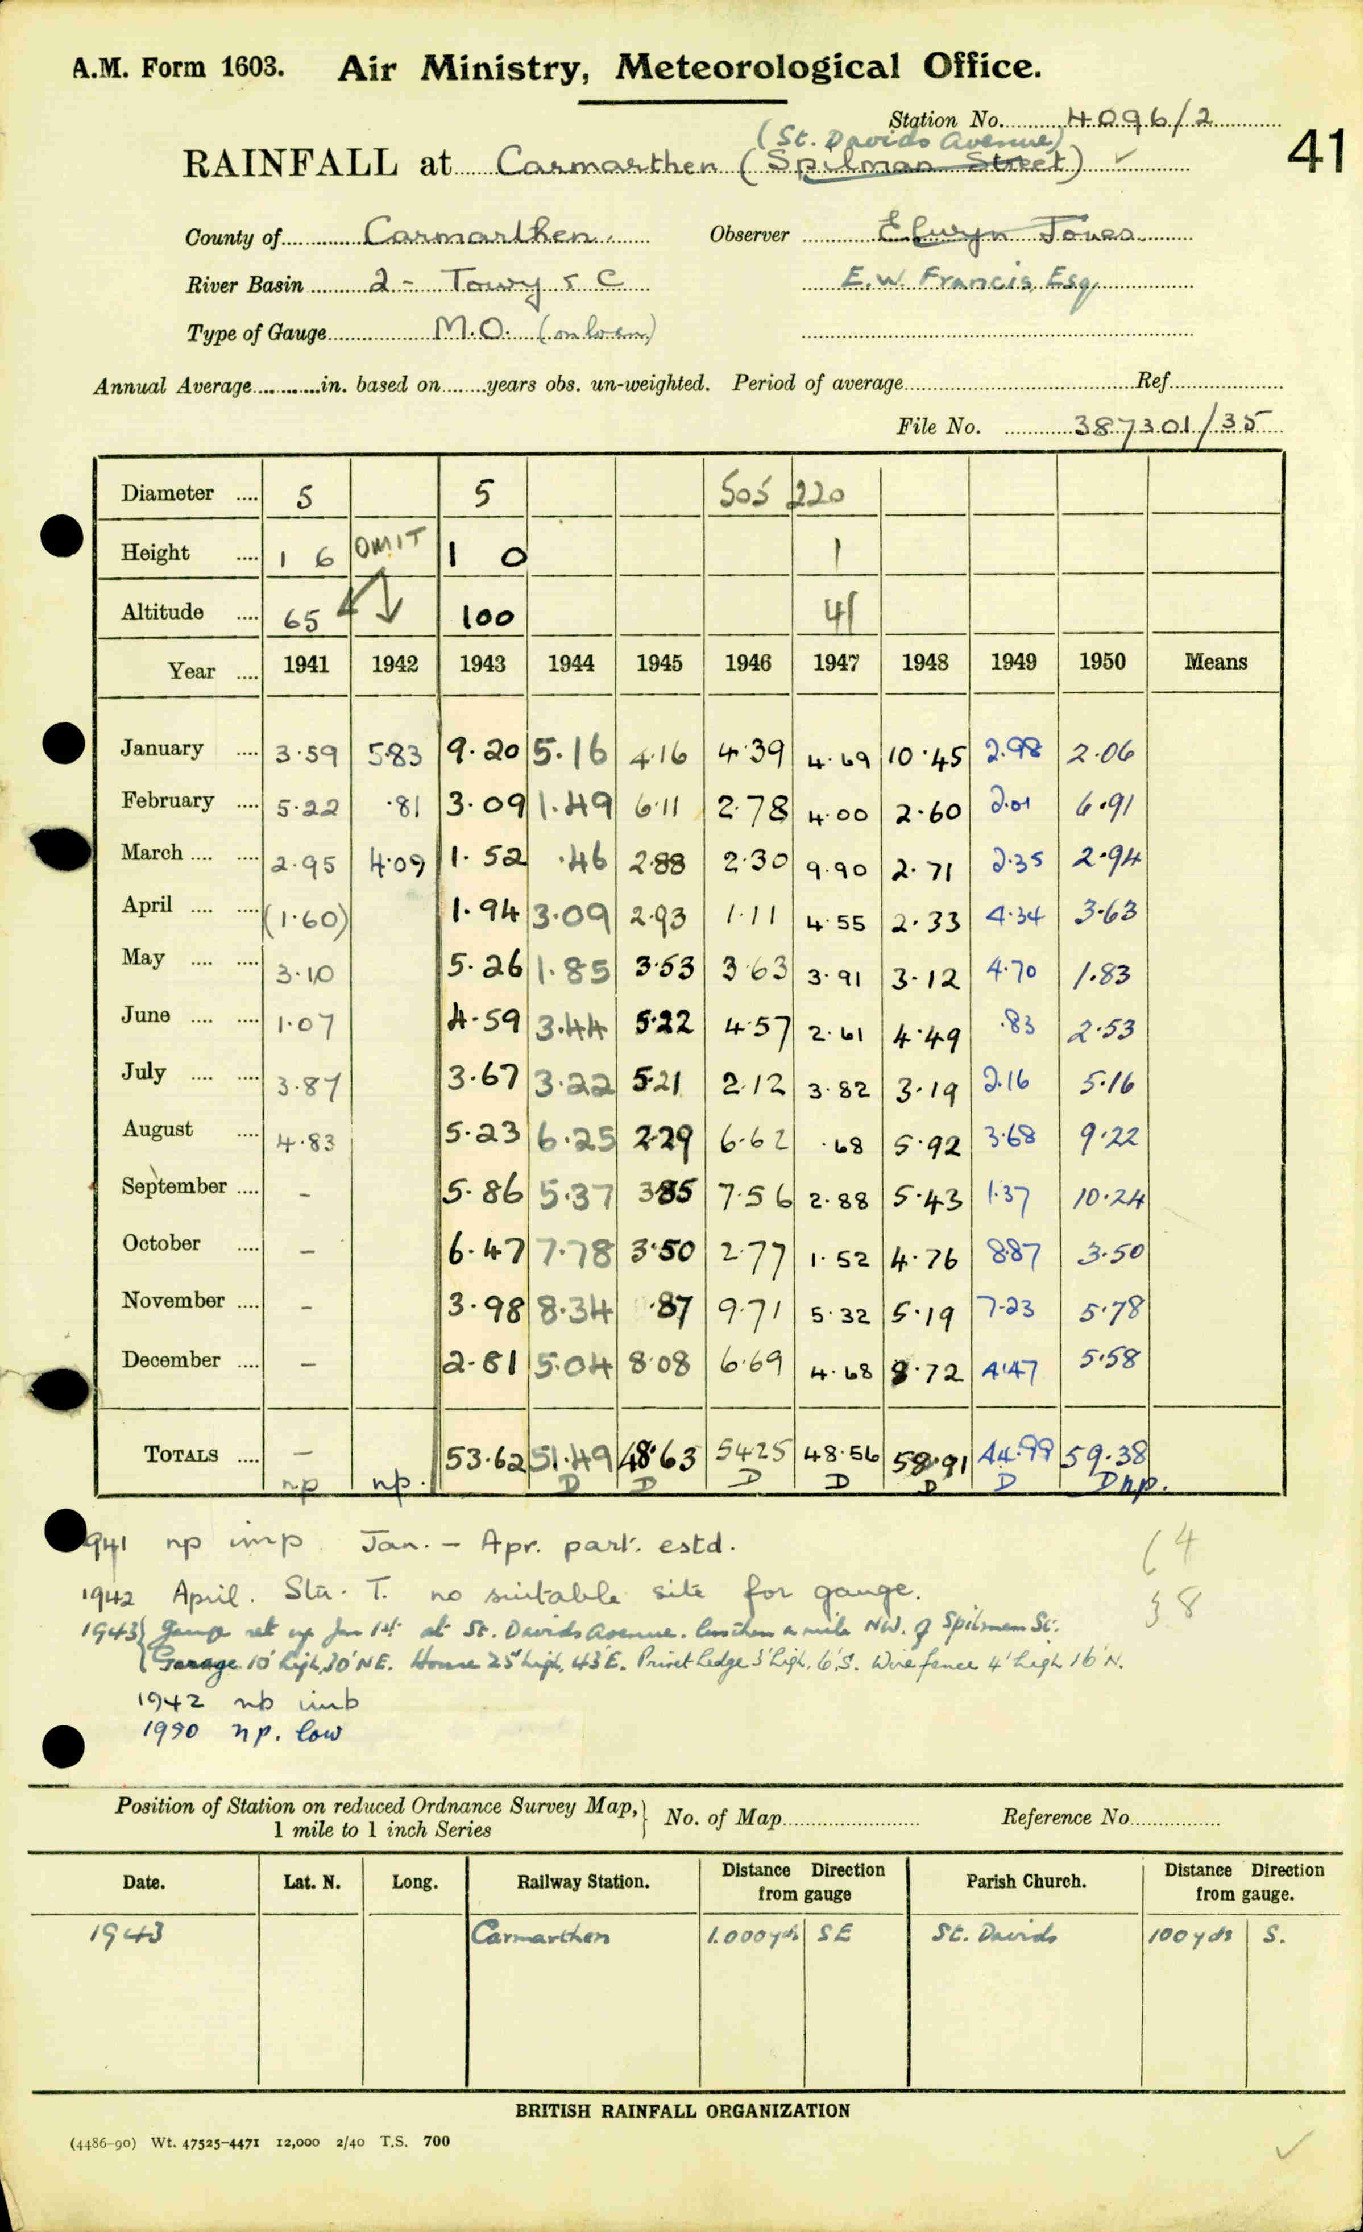 A.M. Form 1603. Air Ministry, Meteorological Office.
Station No. 4096/2
(St. Davids Avenue)
RAINFALL at Carmarthen (Spilman Street) ✓
41
County of Carmarthen. Observer Elwyn Jones
River Basin 2 - Towy & C E.W. Francis Esq.
Type of Gauge M.O. (on loan)
Annual Average in. based on years obs. un-weighted. Period of average Ref.
File No. 387301/35
Diameter 5 5 505 220
Height 1 6 OMIT 1 0 1
Altitude 65 100 41
Year 1941 1942 1943 1944 1945 1946 1947 1948 1949 1950 Means
January 3.59 5.83 9.20 5.16 4.16 4.39 4.69 10.45 2.98 2.06
February 5.22 .81 3.09 1.49 6.11 2.78 4.00 2.60 2.01 6.91
March 2.95 4.09 1.52 .46 2.88 2.30 9.90 2.71 2.35 2.94
April (1.60) 1.94 3.09 2.93 1.11 4.55 2.33 4.34 3.63
May 3.10 5.26 1.85 3.53 3.63 3.91 3.12 4.70 1.83
June 1.07 4.59 3.44 5.22 4.57 2.61 4.49 .83 2.53
July 3.87 3.67 3.22 5.21 2.12 3.82 3.19 2.16 5.16
August 4.83 5.23 6.25 2.29 6.62 .68 5.92 3.68 9.22
September - 5.86 5.37 3.85 7.56 2.88 5.43 1.37 10.24
October - 6.47 7.78 3.50 2.77 1.52 4.76 8.87 3.50
November - 3.98 8.34 .87 9.71 5.32 5.19 7.23 5.78
December - 2.81 5.04 8.08 6.69 4.68 8.72 4.47 5.58
TOTALS - 53.62 51.49 48.63 54.25 48.56 58.91 44.99 59.38
np np. D D D D D D D np.
1941 np imp Jan. - Apr. part. estd.
64
1942 April. Sta. T. no suitable site for gauge.
38
1943 { Gauge set up Jan 1st at St. Davids Avenue. less than a mile NW. of Spilman St.
Garage 10' high, 30' NE. House 25' high, 43' E. Privet hedge 5' high, 6' S. Wire fence 4' high 16' N.
1942 np imp
1950 np. low
Position of Station on reduced Ordnance Survey Map, 1 mile to 1 inch Series } No. of Map Reference No.
Date. Lat. N. Long. Railway Station. Distance Direction from gauge Parish Church. Distance Direction from gauge.
1943 Carmarthen 1.000 yds SE St. Davids 100 yds S.
BRITISH RAINFALL ORGANIZATION
(4486-90) Wt. 47525-4471 12,000 2/40 T.S. 700